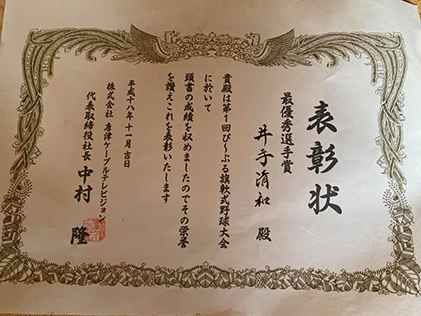 表彰状
最優秀選手賞
井手清和 殿
貴殿は第1回ぴ〜ぷる旗軟式野球大会
に於いて
頭書の成績を収めましたのでその栄誉
を讃えこれを表彰いたします
平成十八年十一月吉日
株式会社 唐津ケーブルテレビジョン
代表取締役社長 中村 隆